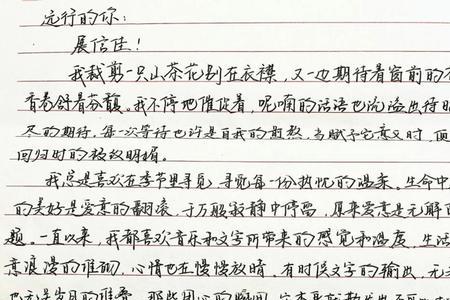 远行的你:
展信佳!
我裁剪一只山茶花别在衣襟,又一边期待着窗前的
香看舒着芬馥。我不停地催促着,呢喃的话语也沉溢出待
尽的期待,每一次等待也许是自我的煎熬,当赋予它意义时,
回归时的极致明媚。
我总是喜欢在季节里寻觅,寻觅每一份热忱的温柔。生命中
的美好是爱意的翻滚,于万般寂静中停留,原来爱意是无解
题。一直以来,我都喜欢音乐和文字所带来的感觉和温度,生活
意浪漫的准砌,心情也在慢慢放晴。有时候文字的输出,无